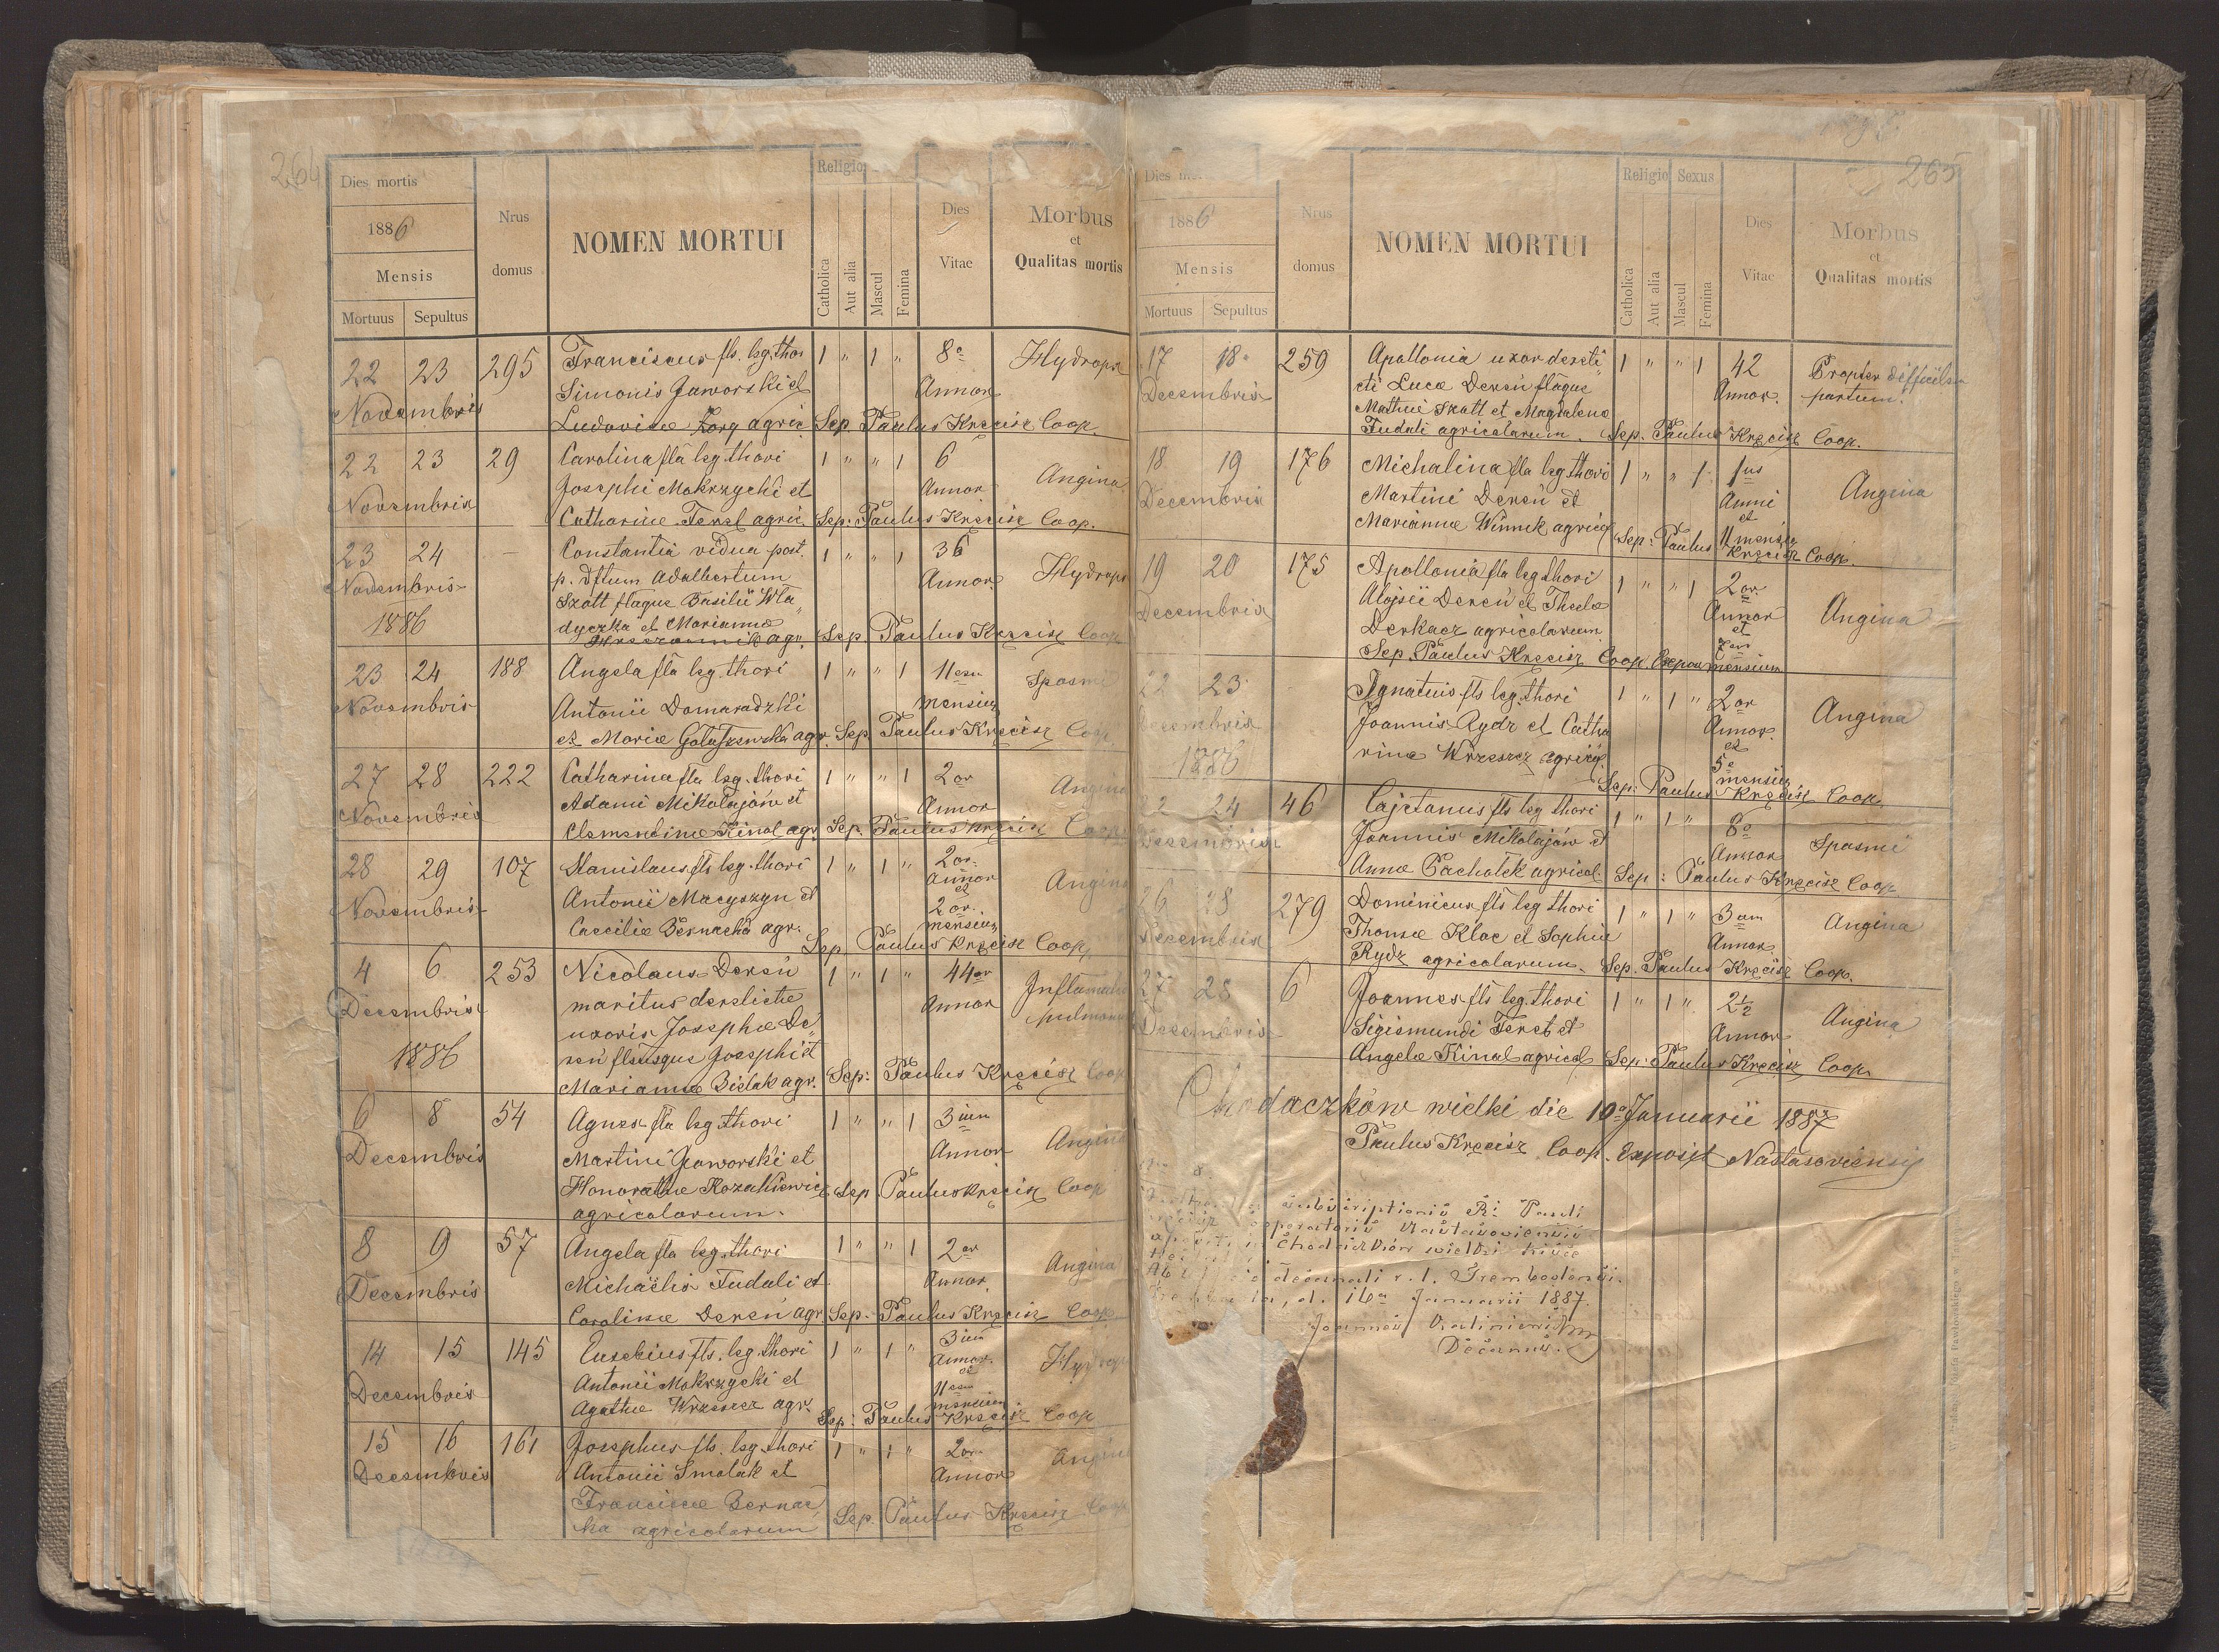 264
Dies mortis
1886
Mensis
Mortuus Sepultus
Nrus domus
NOMEN MORTUI
Religio
Catholica
Aut alia
Mascul
Femina
Dies Vitae
Morbus
et
Qualitas mortis
22 23 295 Franciscus fls. leg. thori 1 " 1 " 8o Hydrops
Novembris Simonis Jaworski et Annor
Ludovicae Zorg agric. Sep. Paulus Kręcisz Coop.
22 23 29 Carolina fla leg. thori 1 " " 1 6 Angina
Novembris Josephi Mokrzycki et Annor
Catharinae Ferel agric. Sep: Paulus Kręcisz Coop.
23 24 – Constantia vidua post. 1 " " 1 36 Hydrops
Novembris p. dftum Adalbertum Annor.
Szatt flaque Basilii Wła„
1886 dyczka et Mariannae
agr. Sep Paulus Kręcisz Coop
23 24 188 Angela fla leg. thori 1 " " 1 11em Spasmi
Novembris Antonii Domaradzki mensium
et Mariae Gołaszewska agr. Sep Paulus Kręcisz Coop
27 28 222 Catharina fla leg. thori 1 " " 1 2or Angina
Novembris Adami Mikołajów et Annor
Clementinae Kinal agr. Sep. Paulus Kręcisz Coop
28 29 107 Stanislaus fls leg. thori 1 " 1 " 2or. Angina
Annor
et
Novembris Antonii Macyszyn et 2or.
Caeciliae Bernacka agr. mensium
Sep. Paulus Kręcisz Coop.
4 6 253 Nicolaus Dereń 1 " 1 " 44or Inflamatio
Decembris maritus derelictae Annor pulmonum
uxoris Josephae De„
1886 reń flsusque Josephi et
Mariannae Bielak agr. Sep: Paulus Kręcisz Coop
6 8 54 Agnes fla leg. thori 1 " " 1 3ium Angina
Decembris Martini Jaworski et Annor
Honorathae Kozakiewicz Sep Paulus Kręcisz Coop
agricolarum.
8 9 57 Angela fla leg. thori 1 " " 1 2or Angina
Decembris Michaëlis Fudali et Annor.
Carolinae Dereń agr Sep. Paulus Kręcisz Coop
14 15 145 Eusebius fls. leg. thori 1 " 1 " 3ium Hydrops
Annor.
et
Decembris Antonii Mokrzycki et 11em
Agathae Wrzeszcz agr. mensium
Sep: Paulus Kręcisz Coop
15 16 161 Josephus fls. leg. thori 1 " 1 " 2or Angina
Decembris Antonii Smolak et Annor
Franciscae Bernac„
ka agricolarum Sep. Paulus Kręcisz Coop
265
Dies
1886
Mensis
Mortuus Sepultus
Nrus domus
NOMEN MORTUI
Religio Sexus
Catholica
Aut alia
Mascul
Femina
Dies Vitae
Morbus
et
Qualitas mortis
17 18 259 Apollonia uxor dereli„ 1 " " 1 42 Propter difficilem
Decembris cti Lucae Dereń flaque Annor. partum.
Mathiei Szatt et Magdalenae
Fudali agricolarum. Sep. Paulus Kręcisz Coop.
18 19 176 Michalina fla leg. thori 1 " " 1 1us Angina
Decembris Martini Dereń et Anni
et
Mariannae Winnik agric. 11 mensium
Sep: Paulus Kręcisz Coop.
19 20 175 Apollonia fla leg. thori 1 " " 1 2or Angina
Decembris Alojsii Dereń et Theclae Annor
et
Derkacz agricolarum
Sep. Paulus Kręcisz Coop. Expos mensium
22 23 Ignatius fls leg. thori 1 " 1 " 2or Angina
Decembris Joannis Rydz et Catha Annor.
et
1886 rinae Wrzeszcz agric. 5e
mensium
Sep: Paulus Kręcisz Coop.
22 24 46 Cajetanus fls leg thori 1 " 1 " 8o Spasmi
Decembris Joannis Mikołajów et Annor
Annae Pachołek agricol. Sep: Paulus Kręcisz Coop
26 28 279 Dominicus fls leg thori 1 " 1 " 3um Angina
Decembris Thomae Kloc et Sophiae Annor.
Rydz agricolarum. Sep. Paulus Kręcisz Coop.
27 28 6 Joannes fls leg. thori 1 " 1 " 2½ Angina
Decembris Sigismundi Feret et Annor
Angelae Kinal agricol Sep: Paulus Kręcisz Coop.
Chodaczków wielki die 10a Januarii 1887
Paulus Kręcisz Coop. Exposit Nastasoviensis
subscriptionis R. Pauli
Kręcisz Cooperatoris Nastasoviensis
in Chodaczków wielki
decanali r. l. Trembovlensi.
d. 16a Januarii 1887.
Joannes
Decanus.